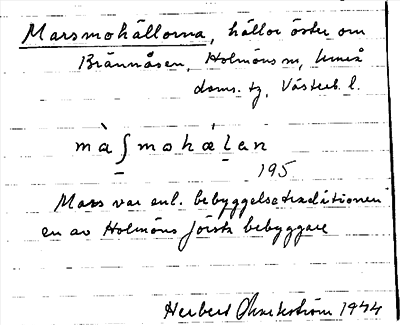 Marsmohällorna, hällor öster om
Brännåsen, Holmöns sn, Umeå
doms. tg, Västerb. l.
mà ʃ mohälan
195
Mars var enl. bebyggelsetraditionen
en av Holmöns första bebyggare
Herbert 1944